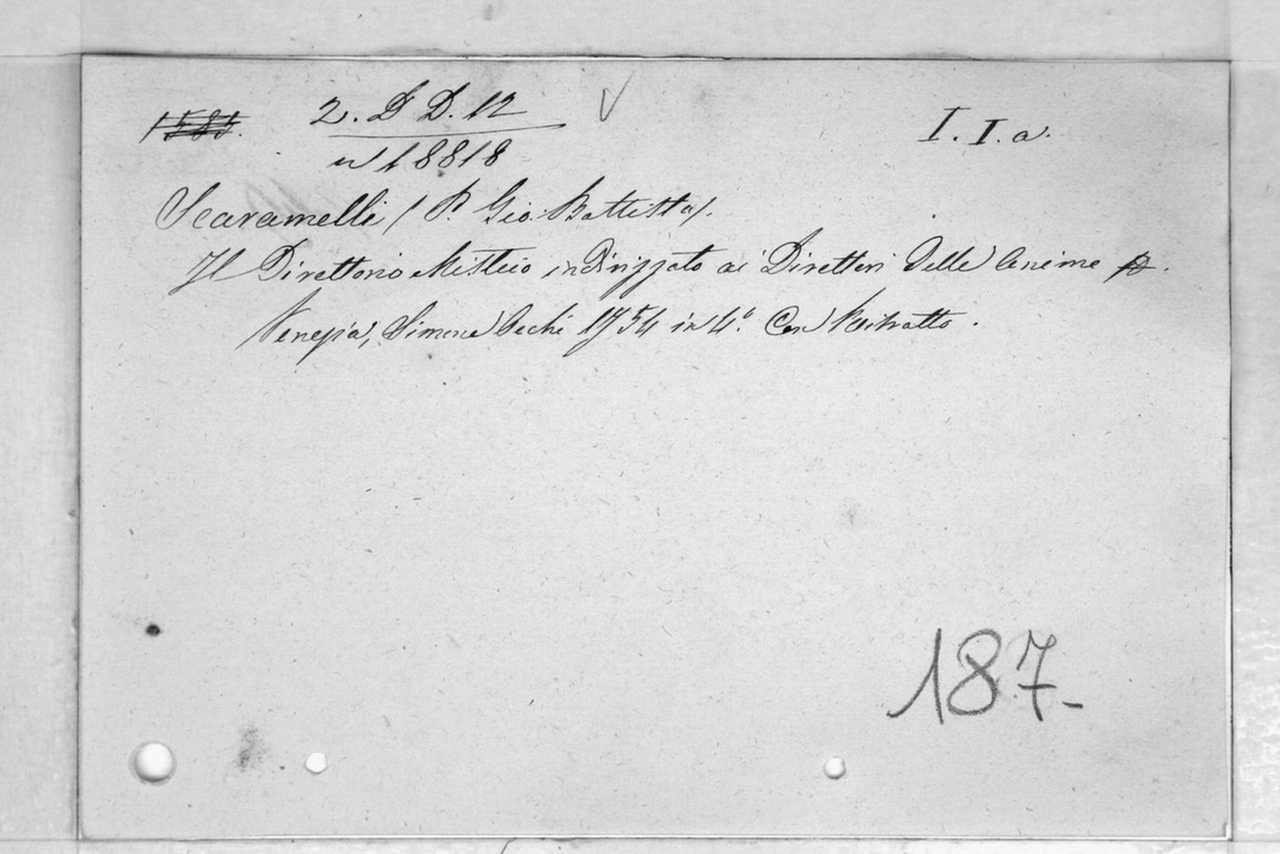 2. D D. 12 I. I. a.
n 18818
Scaramelli (P. Gio: Battista).
Il Direttorio Mistico indirizzato ai Direttori delle Anime
Venezia, Simone Occhi 1754 in 4.° Con Ritratto.
187-